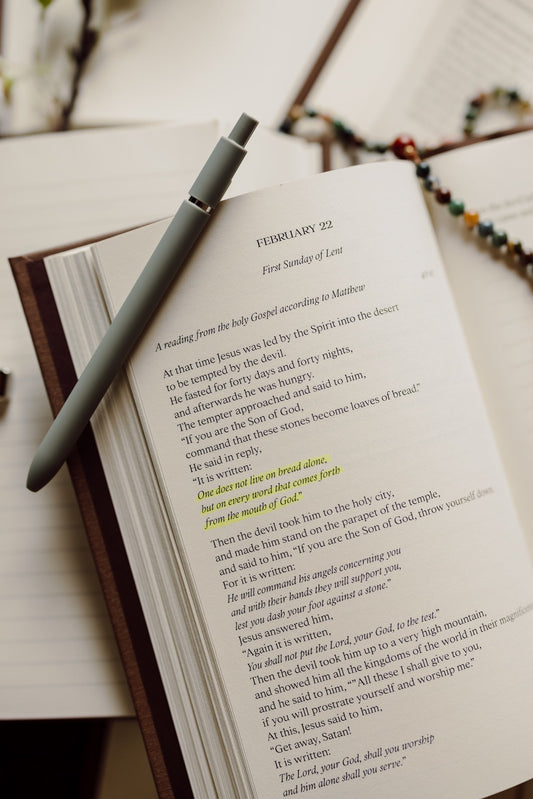 FEBRUARY 22
First Sunday of Lent
A reading from the holy Gospel according to Matthew
At that time Jesus was led by the Spirit into the desert
to be tempted by the devil.
He fasted for forty days and forty nights,
and afterwards he was hungry.
The tempter approached and said to him,
“If you are the Son of God,
command that these stones become loaves of bread.”
He said in reply,
“It is written:
One does not live on bread alone,
but on every word that comes forth
from the mouth of God.”
Then the devil took him to the holy city,
and made him stand on the parapet of the temple,
and said to him, “If you are the Son of God, throw yourself down.
For it is written:
He will command his angels concerning you
and with their hands they will support you,
lest you dash your foot against a stone.”
Jesus answered him,
“Again it is written,
You shall not put the Lord, your God, to the test.”
Then the devil took him up to a very high mountain,
and showed him all the kingdoms of the world in their magnificence,
and he said to him, “”All these I shall give to you,
if you will prostrate yourself and worship me.”
At this, Jesus said to him,
“Get away, Satan!
It is written:
The Lord, your God, shall you worship
and him alone shall you serve.”